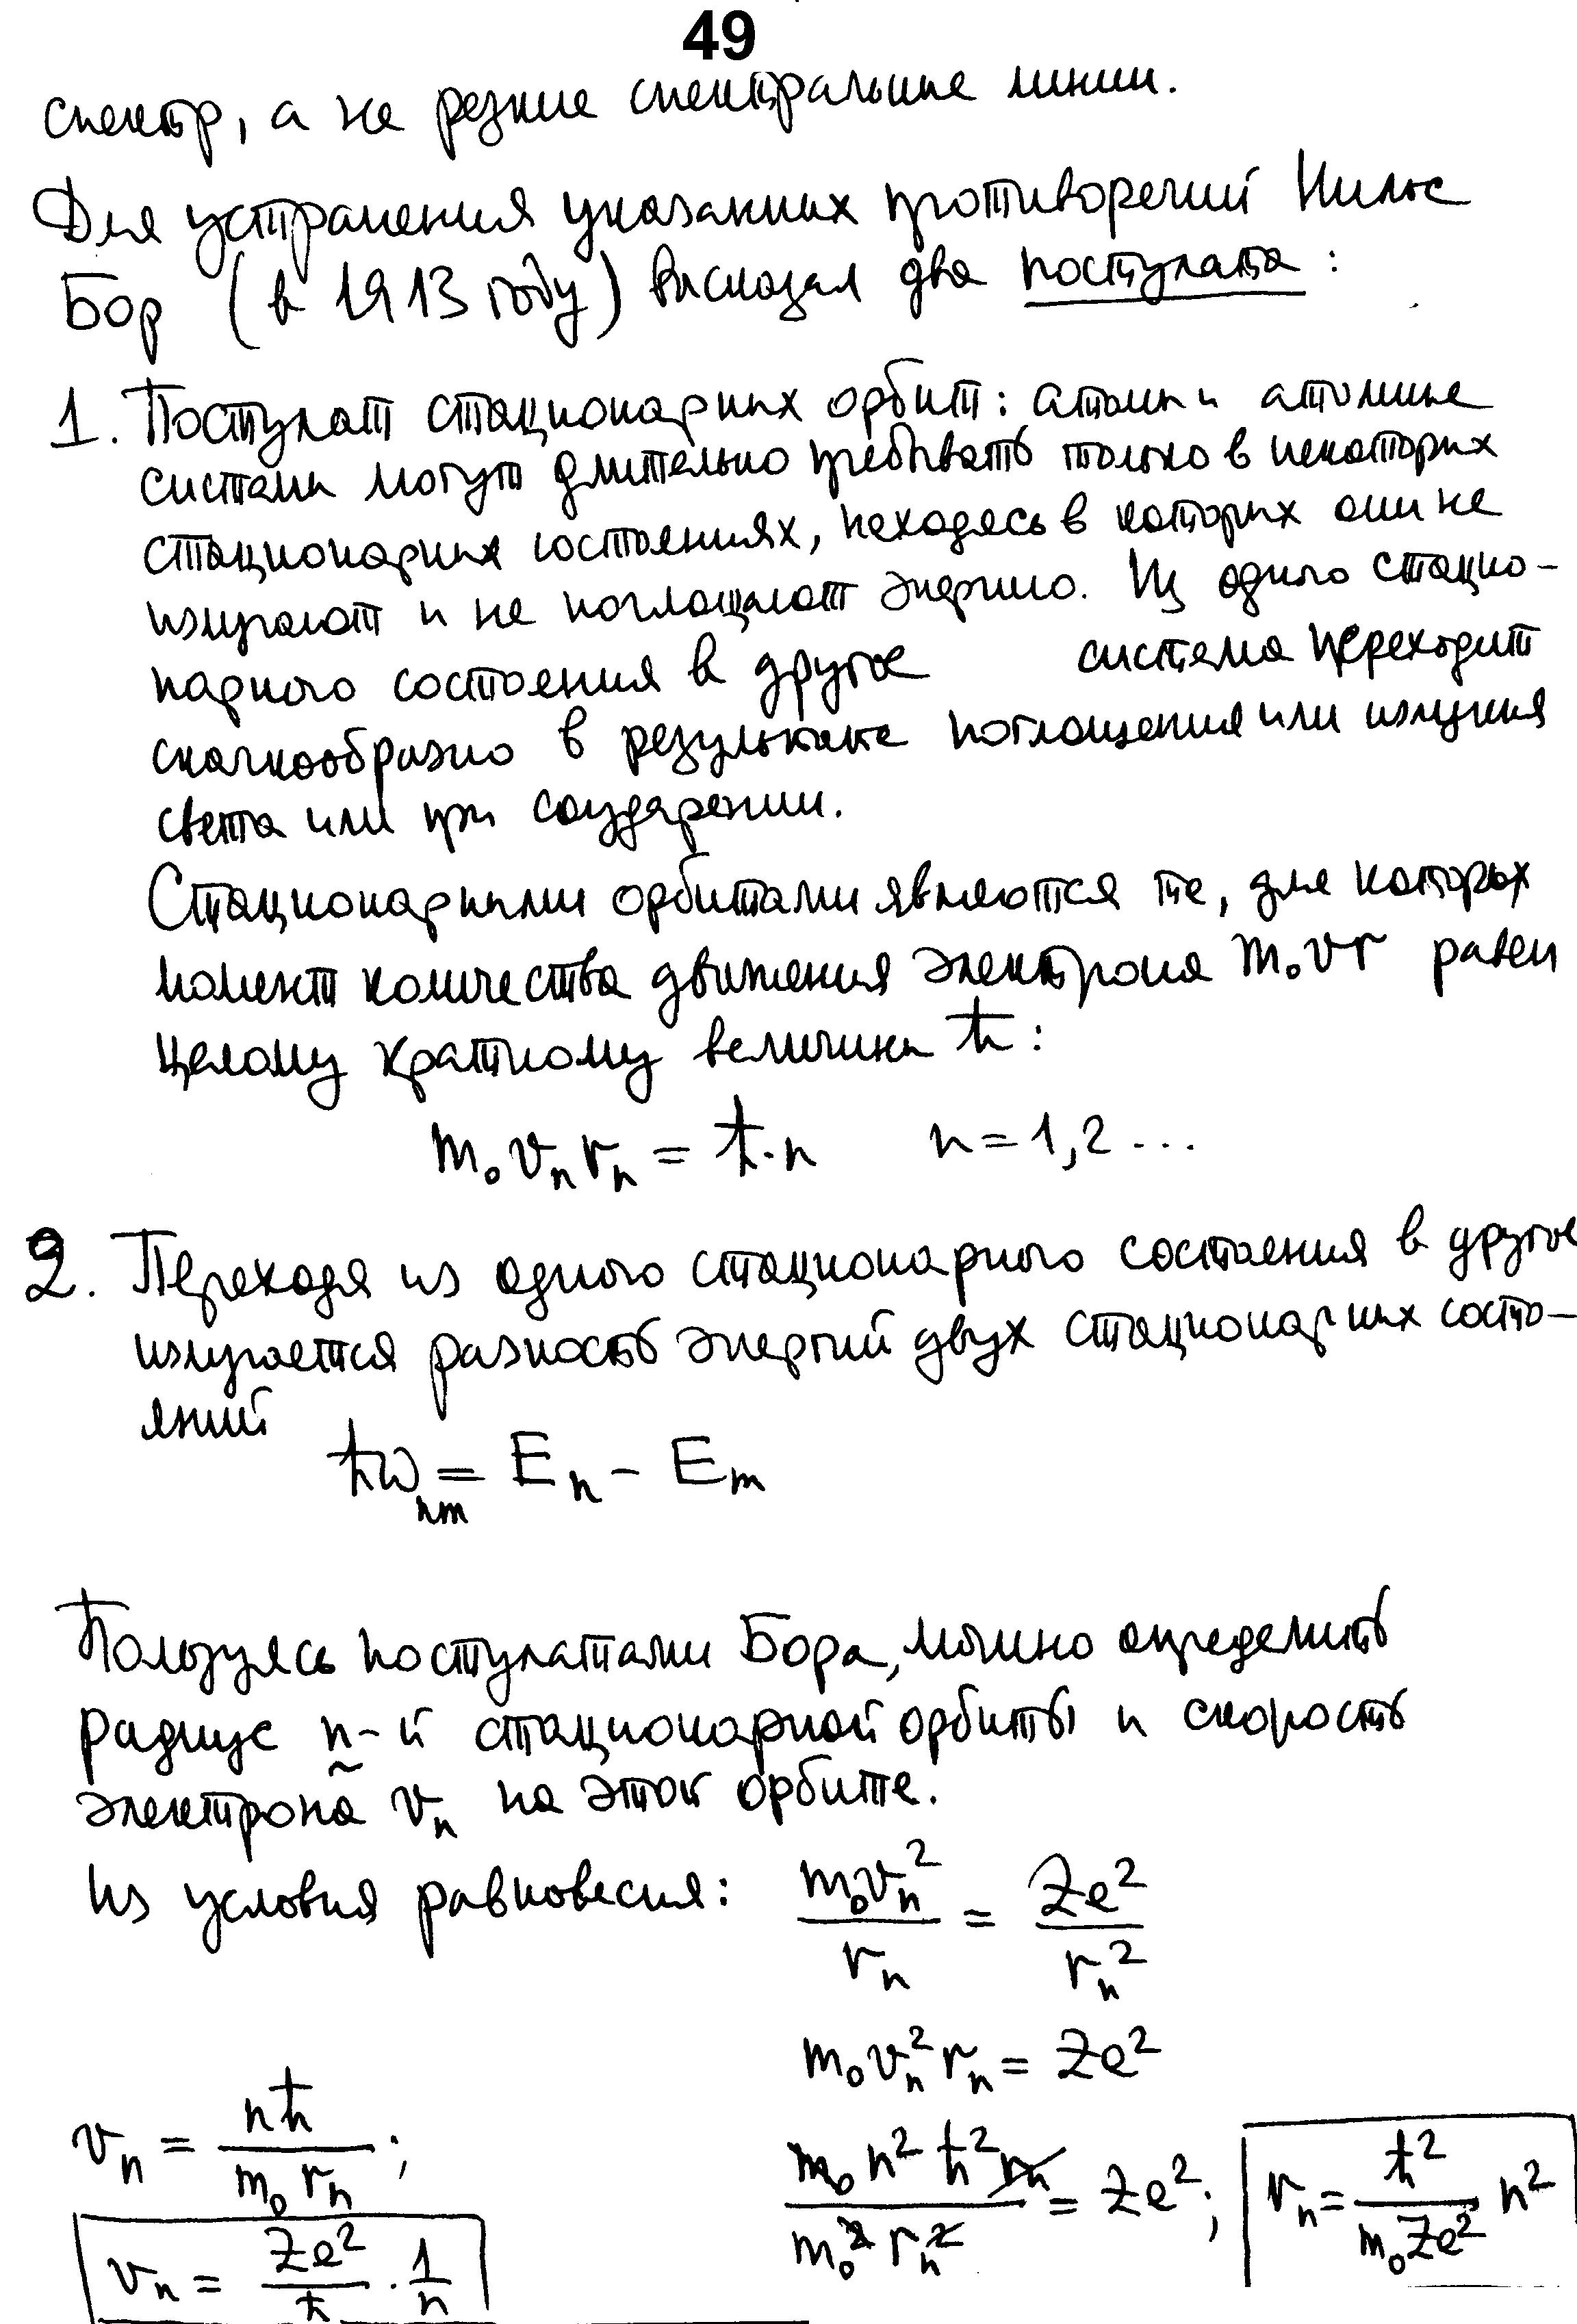 49
спектр, а не резкие спектральные линии.
Для устранения указанных противоречий Нильс
Бор (в 1913 году) высказал два постулата:
1. Постулат стационарных орбит: атомы и атомные
системы могут длительно пребывать только в некоторых
стационарных состояниях, находясь в которых они не
излучают и не поглощают энергию. Из одного стацио-
нарного состояния в другое система переходит
скачкообразно в результате поглощения или излучения
света или при соударении.
Стационарными орбитами являются те, для которых
момент количества движения электрона m₀vr равен
целому кратному величины ħ:
m₀vₙrₙ = ħ·n n = 1,2 ...
2. Переходя из одного стационарного состояния в другое
излучается разность энергий двух стационарных состо-
яний
ħω_{nm} = Eₙ - Eₘ
Пользуясь постулатами Бора, можно определить
радиус n-й стационарной орбиты и скорость
электрона vₙ на этой орбите.
Из условия равновесия: m₀vₙ²/rₙ = Ze²/rₙ²
m₀vₙ²rₙ = Ze²
vₙ = nħ/(m₀rₙ); m₀n²ħ²rₙ/(m₀²rₙ²) = Ze²; rₙ = ħ²/(m₀Ze²) n²
vₙ = Ze²/ħ · 1/n